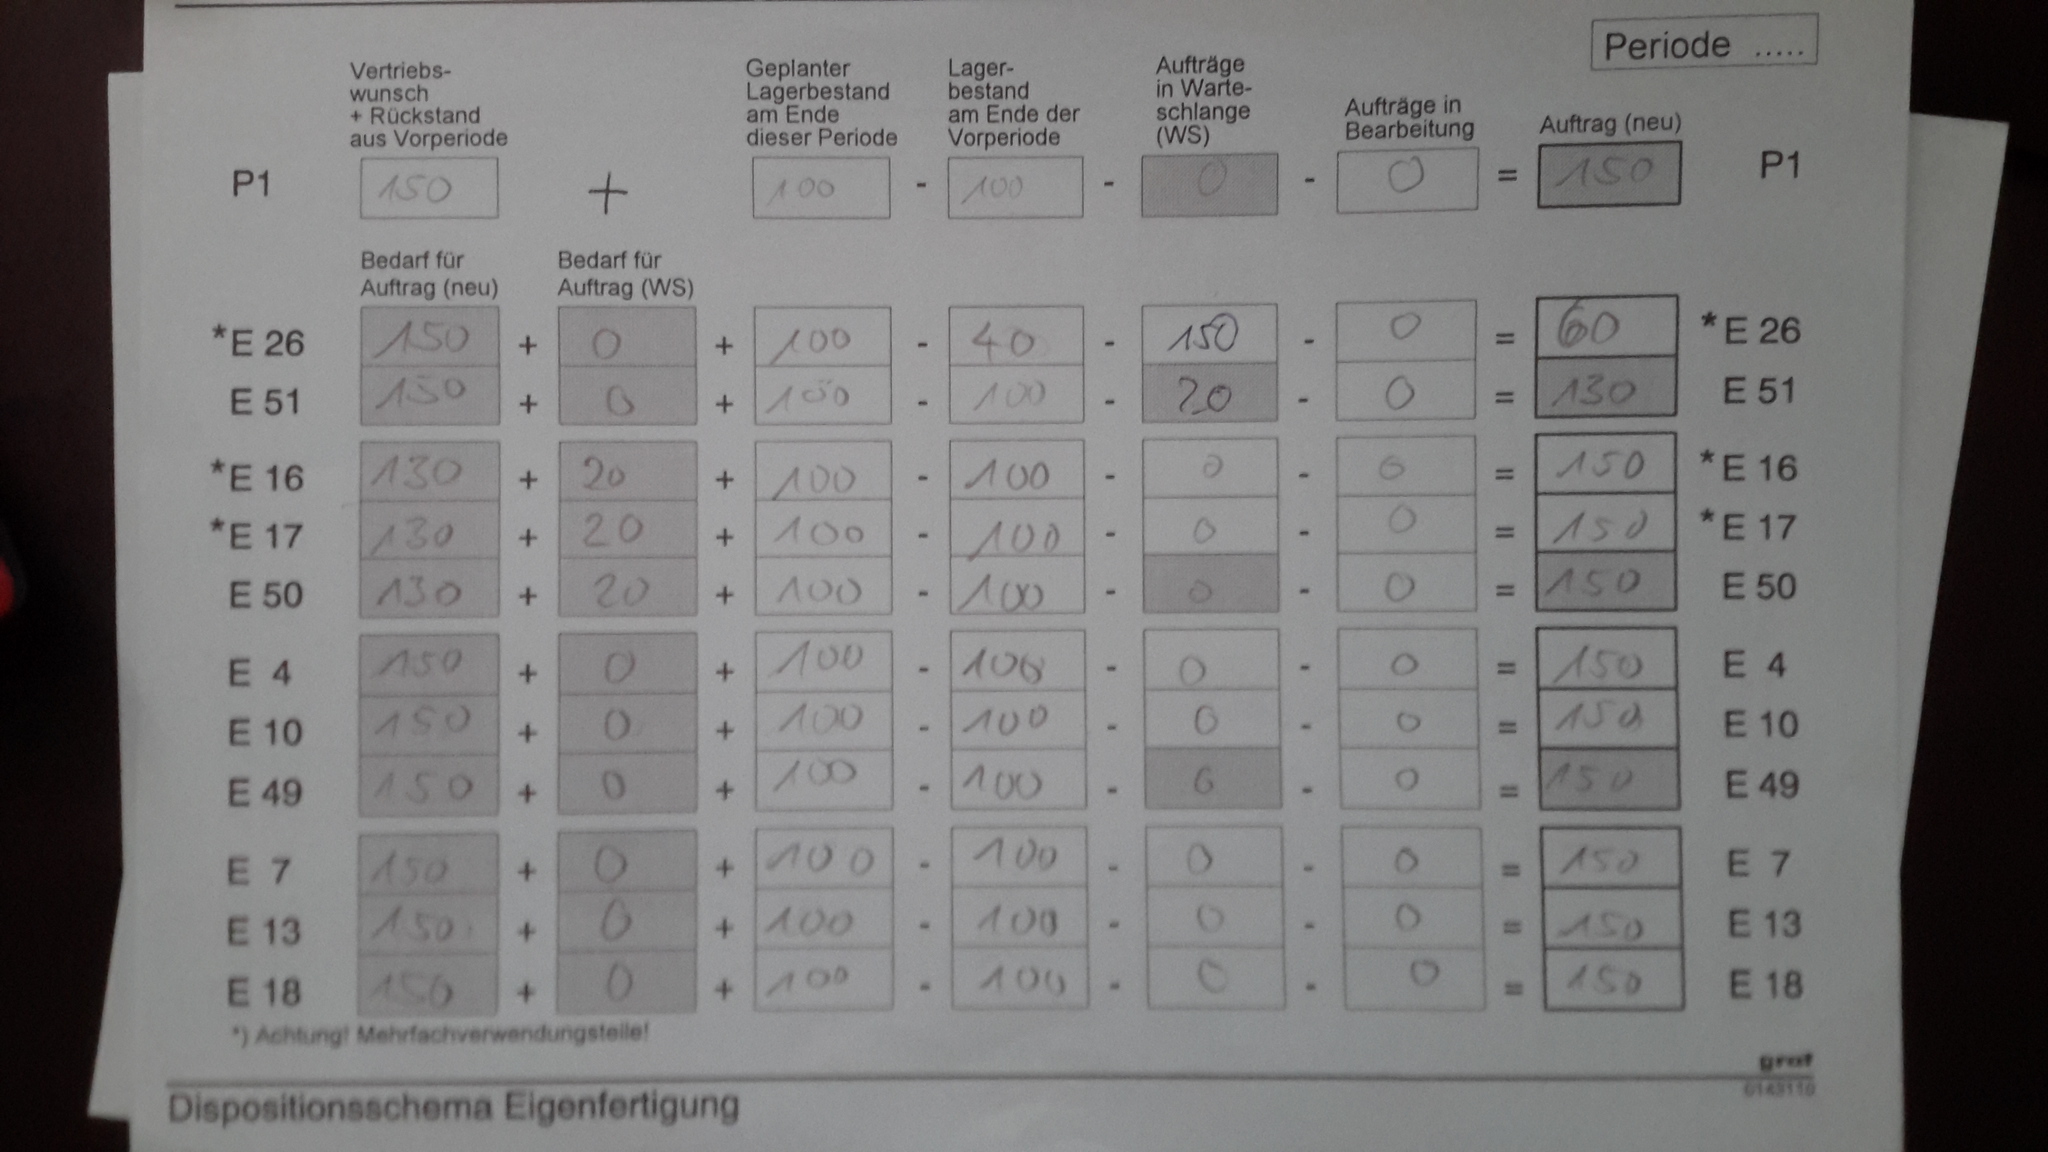 Periode .....
Vertriebs-
wunsch
+ Rückstand
aus Vorperiode
Geplanter
Lagerbestand
am Ende
dieser Periode
Lager-
bestand
am Ende der
Vorperiode
Aufträge
in Warte-
schlange
(WS)
Aufträge in
Bearbeitung
Auftrag (neu)
P1 150 + 100 - 100 - 0 - 0 = 150 P1
Bedarf für
Auftrag (neu)
Bedarf für
Auftrag (WS)
*E 26 150 + 0 + 100 - 40 - 150 - 0 = 60 *E 26
E 51 150 + 0 + 100 - 100 - 20 - 0 = 130 E 51
*E 16 130 + 20 + 100 - 100 - 0 - 0 = 150 *E 16
*E 17 130 + 20 + 100 - 100 - 0 - 0 = 150 *E 17
E 50 130 + 20 + 100 - 100 - 0 - 0 = 150 E 50
E 4 150 + 0 + 100 - 100 - 0 - 0 = 150 E 4
E 10 150 + 0 + 100 - 100 - 0 - 0 = 150 E 10
E 49 150 + 0 + 100 - 100 - 0 - 0 = 150 E 49
E 7 150 + 0 + 100 - 100 - 0 - 0 = 150 E 7
E 13 150 + 0 + 100 - 100 - 0 - 0 = 150 E 13
E 18 150 + 0 + 100 - 100 - 0 - 0 = 150 E 18
*) Achtung! Mehrfachverwendungsteile!
Dispositionsschema Eigenfertigung